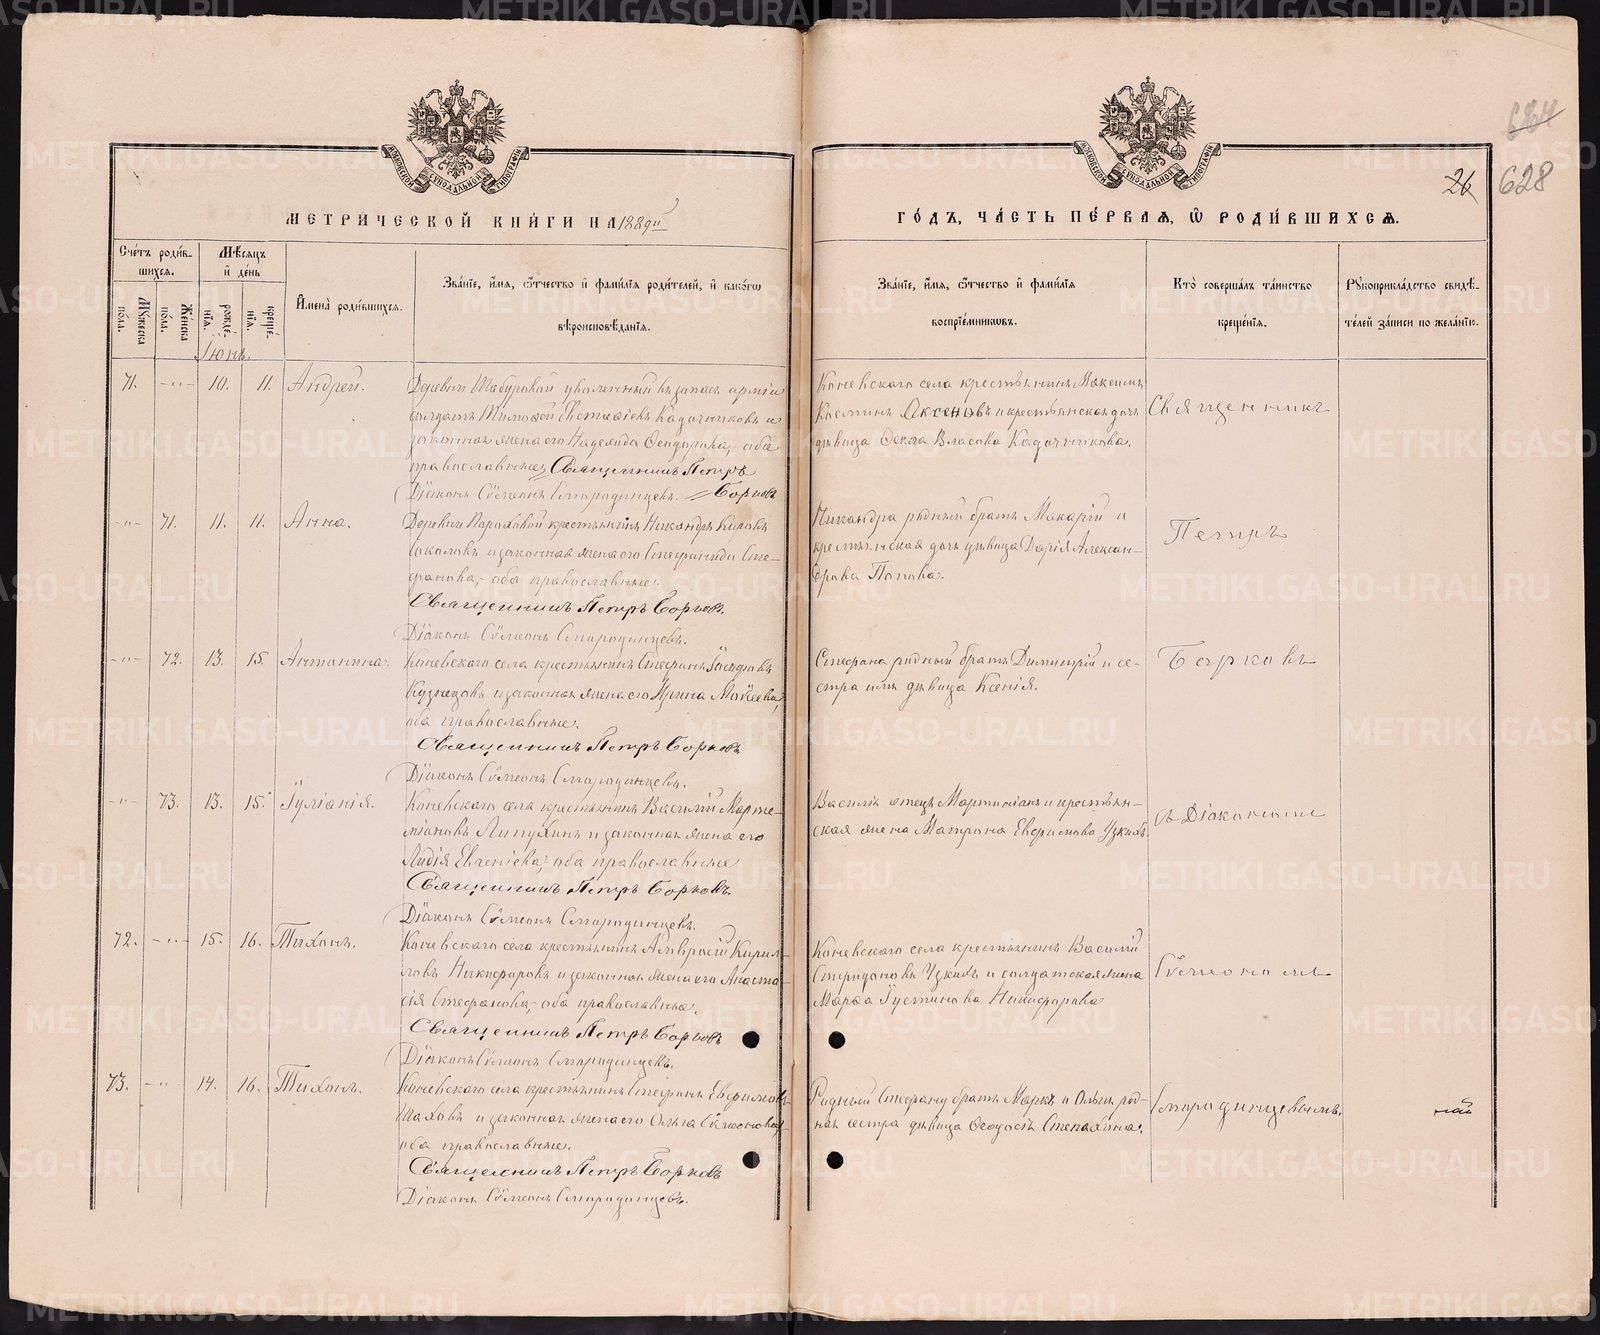 684
26 628
МЕТРИЧЕСКОЙ КНИГИ НА 1889й
ГОДЪ, ЧАСТЬ ПЕРВАЯ, Ѿ РОДИВШИХСЯ.
Счетъ родившихся.
Мужеска пола.
Женска пола.
Мѣсяцъ и день
рожденїя.
крещенїя.
Имена родившихся.
Званїе, имя, ѿтчество и фамилїя родителей, и какогѡ
вѣроисповѣданїя.
Званїе, имя, ѿтчество и фамилїя
воспрїемникѡвъ.
Кто совершалъ таинство
крещенїя.
Рукоприкладство свидѣтелей записи по желанїю.
Іюнь.
71. -„- 10. 11. Андрей.
Деревни Шабуровой уволенный въ запасъ арміи
солдатъ Тимофей Кадочниковъ и
законная жена его Надежда Ѳеодорова, оба
православные, Священникъ Петръ
Діаконъ Сѵмеонъ Смородинцевъ. Борковъ
Коневскаго села крестьянинъ Максимъ
Косминъ Аксеновъ и крестьянская дочь
дѣвица Ѳекла Власова Кадочникова.
Священникъ
-„- 71. 11. 11. Анна.
Деревни крестьянинъ Никандръ Кировъ
Соколовъ и законная жена его Стефанида Сте-
фанова, оба православные.
Священникъ Петръ Борковъ.
Діаконъ Сѵмеонъ Смородинцевъ.
Никандра родный братъ Макарій и
крестьянская дочь дѣвица Дарія Алексан-
дрова Попова.
Петръ
-„- 72. 13. 15. Антонина.
Коневскаго села крестьянинъ Стефанъ
Кузнецовъ и законная жена его Ирина Моѵсеева,
оба православные.
Священникъ Петръ Борковъ
Діаконъ Сѵмеонъ Смородинцевъ.
Стефана родный братъ Димитрій и се-
стра ихъ дѣвица Ксенія.
Борковъ
-„- 73. 13. 15. Іуліанія.
Коневскаго села крестьянинъ Василій Марти-
міановъ Липухинъ и законная жена его
Лидія Евгеніева, оба православные
Священникъ Петръ Борковъ.
Діаконъ Сѵмеонъ Смородинцевъ.
Василія отецъ Мартиміанъ и крестьян-
ская жена Матрона Евфимова Узкихъ.
съ Діакономъ
72. -„- 15. 16. Тихонъ.
Коневскаго села крестьянинъ Амвросій Кирил-
ловъ Никифоровъ и законная жена его Анаста-
сія Стефанова, оба православные.
Священникъ Петръ Борковъ
Діаконъ Сѵмеонъ Смородинцевъ.
Коневскаго села крестьянинъ Василій
Спиридоновъ Узкихъ и солдатская жена
Марѳа Іустинова Никифорова
Сѵмеономъ
73. -„- 14. 16. Тихонъ.
Коневскаго села крестьянинъ Стефанъ Евфимовъ
Шаховъ и законная жена его Ольга Сѵмеонова,
оба православные.
Священникъ Петръ Борковъ
Діаконъ Сѵмеонъ Смородинцевъ.
Родный Стефану братъ Маркъ и Ольги род-
ная сестра дѣвица Ѳеодосія Степахина.
Смородинцевымъ.